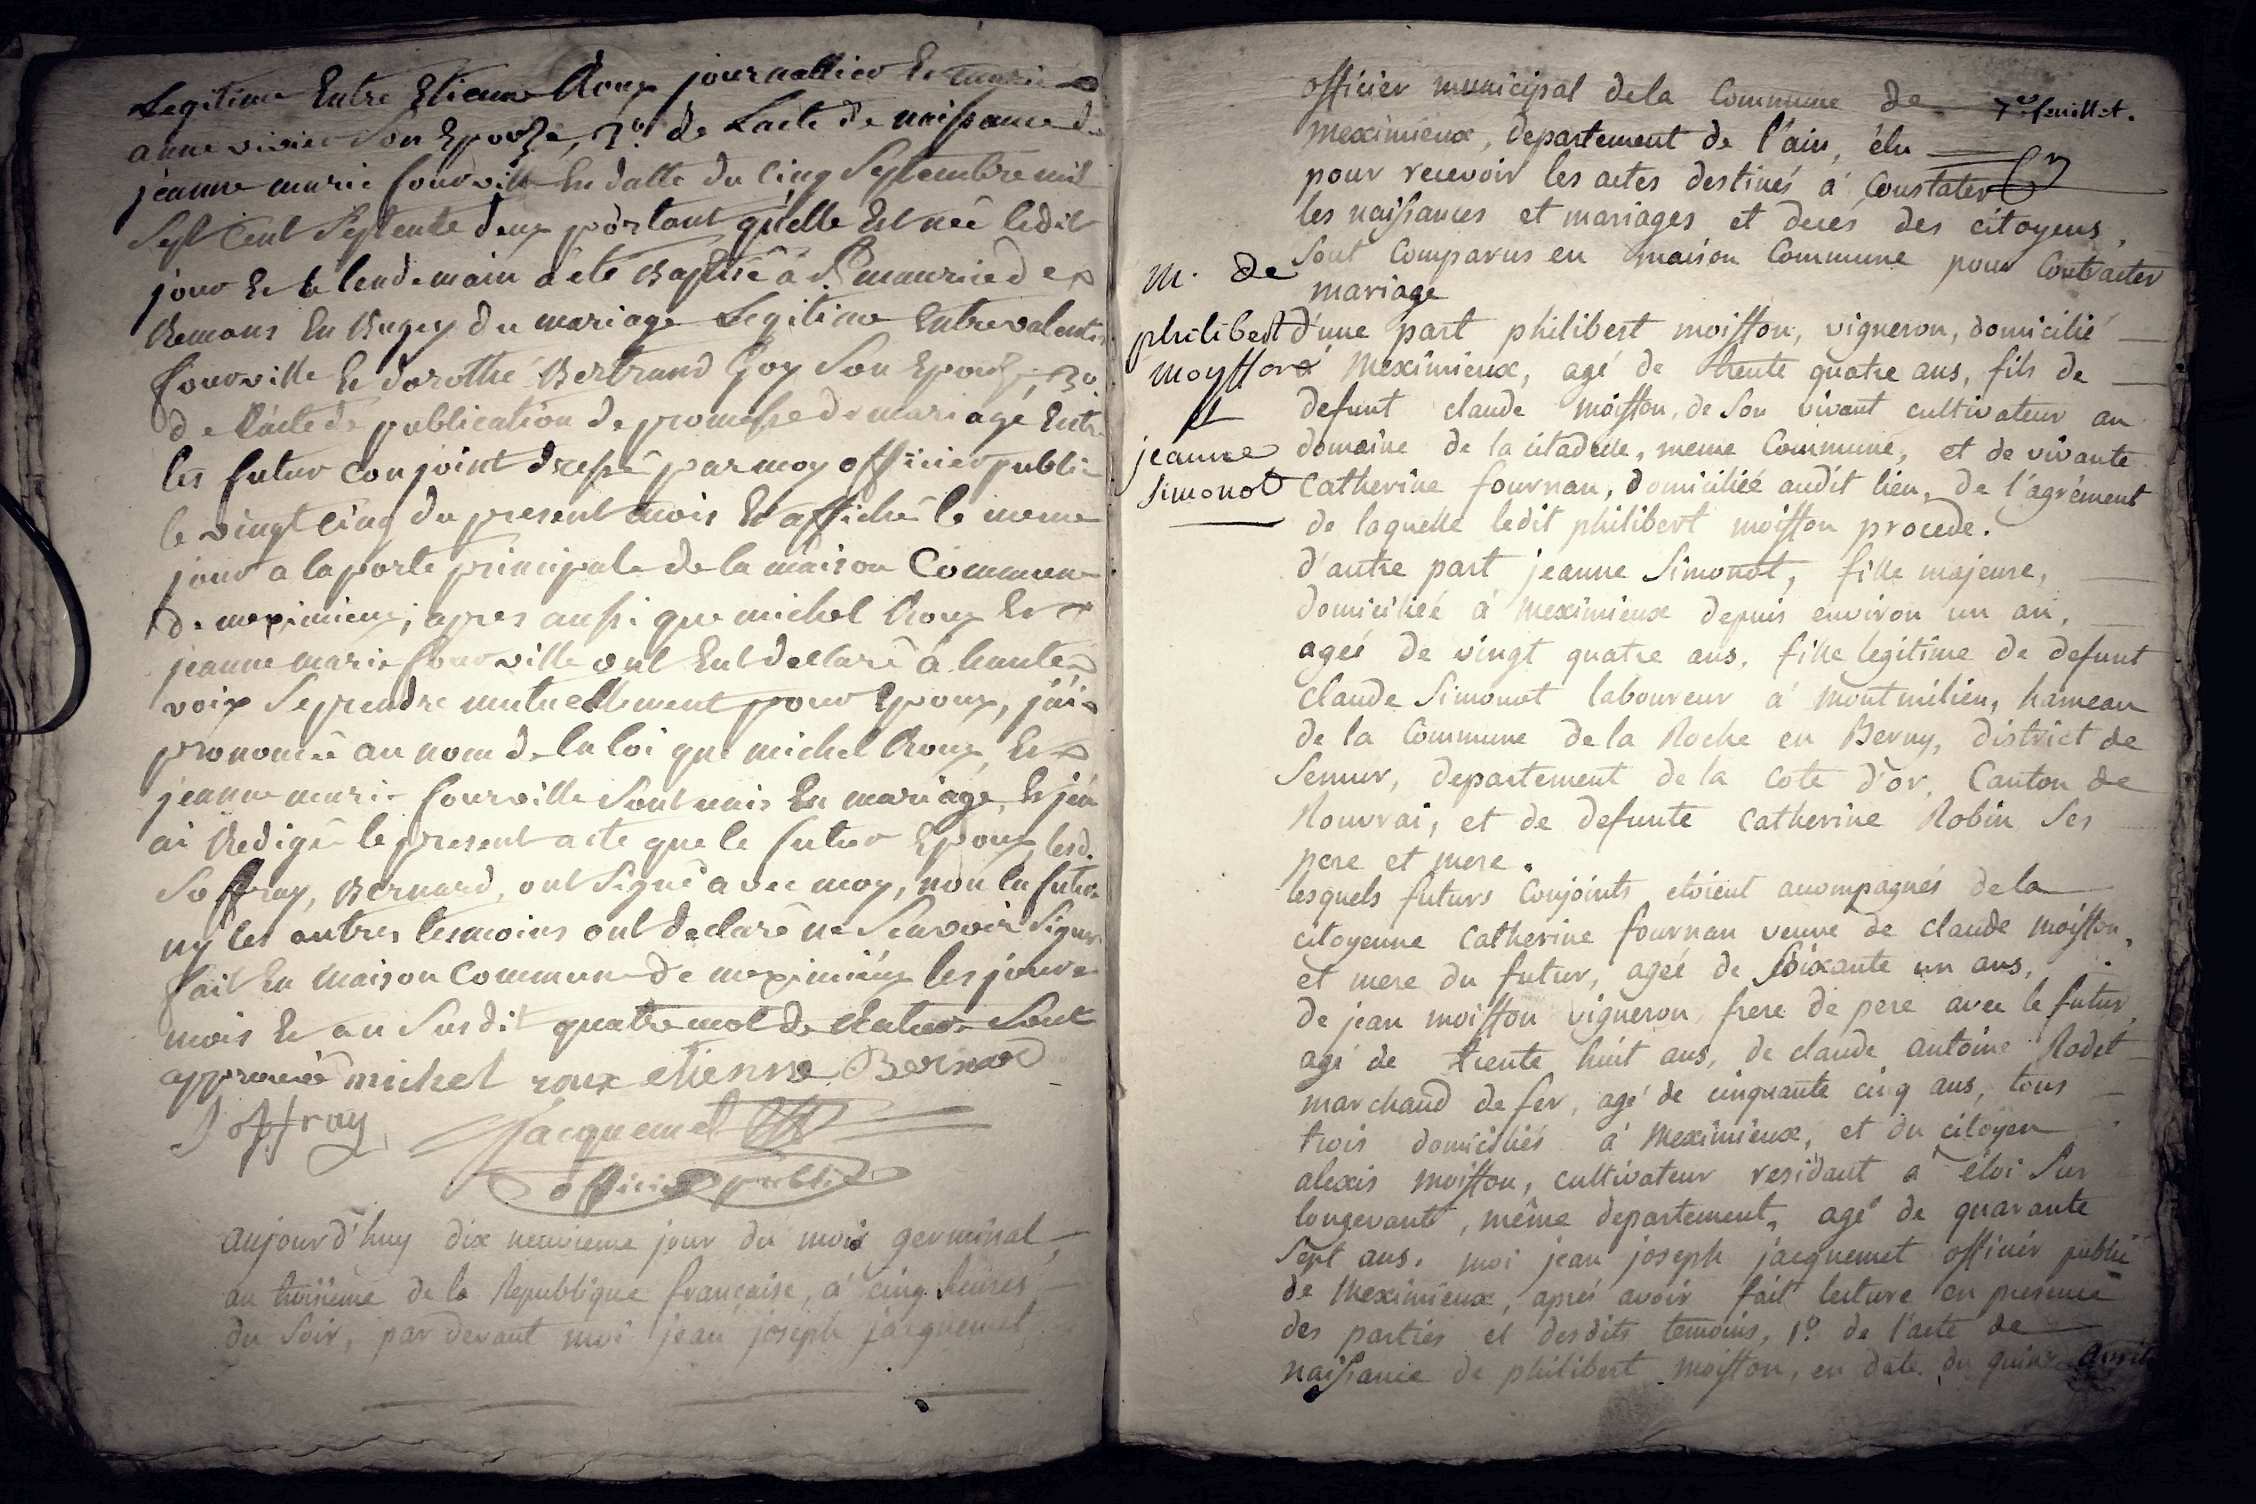 Legitime Entre Etienne Roux journallier Et marie
anne vivier Son Epouse, 2°. de Lacte de naissance de
jeanne marie fourville En datte du Cinq Septembre mil
Sept Cent Septente deux portant quelle Est née ledit
jour Et le lendemain a été Baptisé à St. maurice de
Remans En Bugey du mariage Legitime Entre valentin
fourville Et dorothé Bertrand Goy Son Epouse, 3°.
de l'acte de publication de promesse de mariage Entre
les futur conjoint dressé par moy officier public
le vingt Cinq du present mois Et affiché le meme
jour a la porte principale de la maison Commune
de meximieux; apres aussi que michel Roux Et
jeanne marie fourville ont Eut declaré à haute
voix Se prendre mutuellement pour Epoux, j'ai
prononcé au nom de la loi que michel Roux, Et
jeanne marie fourville Sont unis En mariage, Et j'en
ai Redigé le present acte que le futur Epoux, lesd.
Soffray, Bernard, ont Signé avec moy, non la future
ny les autres temoins ont declaré ne Scavoir Signer
fait En Maison Commune de meximieux les jour
mois Et an Susdit quatre mot de Rature Sont
approuvé michel roux etienne Bernard
Joffray jacquemet
officier public
aujourd'huy dix neuvieme jour du mois germinal,
an troisieme de la Republique française, à cinq heures
du Soir, par devant moi jean joseph jacquemet
7e. feuillet.
officier municipal de la Commune de
Meximieux, departement de l'ain, élu
pour recevoir les actes destinés à Constater
les naissances et mariages et decés des citoyens,
Sont Comparus en maison Commune pour Contracter
mariage
m. de
philibert
moysson
et
jeanne
Simonot
d'une part philibert moisson, vigneron, domicilié
à Meximieux, agé de trente quatre ans, fils de
defunt claude moisson, de Son vivant cultivateur au
domaine de la citadelle, meme Commune, et de vivante
Catherine fournan, domiciliéé audit lieu, de l'agrément
de laquelle ledit philibert moisson procede.
d'autre part jeanne Simonot, fille majeure,
domiciliéé à Meximieux depuis environ un an,
ageé de vingt quatre ans, fille legitime de defunt
Claude Simonot laboureur à Montmilien, hameau
de la Commune de la Roche en Berny, district de
Semur, departement de la Cote d'or, Canton de
Rouvrai, et de defunte Catherine Robin Ses
pere et mere.
lesquels futurs Conjoints etoient acompagnés de la
citoyenne Catherine fournan veuve de claude moisson,
et mere du futur, ageé de Soixante un ans,
de jean moisson vigneron frere de pere avec le futur,
agé de trente huit ans, de claude antoine Rodet
marchand de fer, agé de cinquante cinq ans, tous
trois domiciliés à Meximieux, et du citoyen
alexis moisson, cultivateur residant à éloi Sur
longevant, même departement, agé de quarante
Sept ans. moi jean joseph jacquemet officier public
de Meximieux, aprés avoir fait lecture en presence
des parties et desdits temoins, 1°. de l'acte de
naissance de philibert Moisson, en date du quinze avril